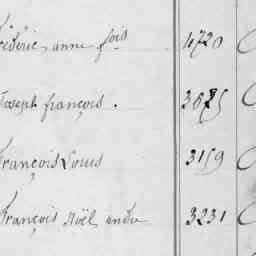 fréderic anne fois 4720
Joseph françois. 3875
françois Louis 3159
françois Noël andre 3231